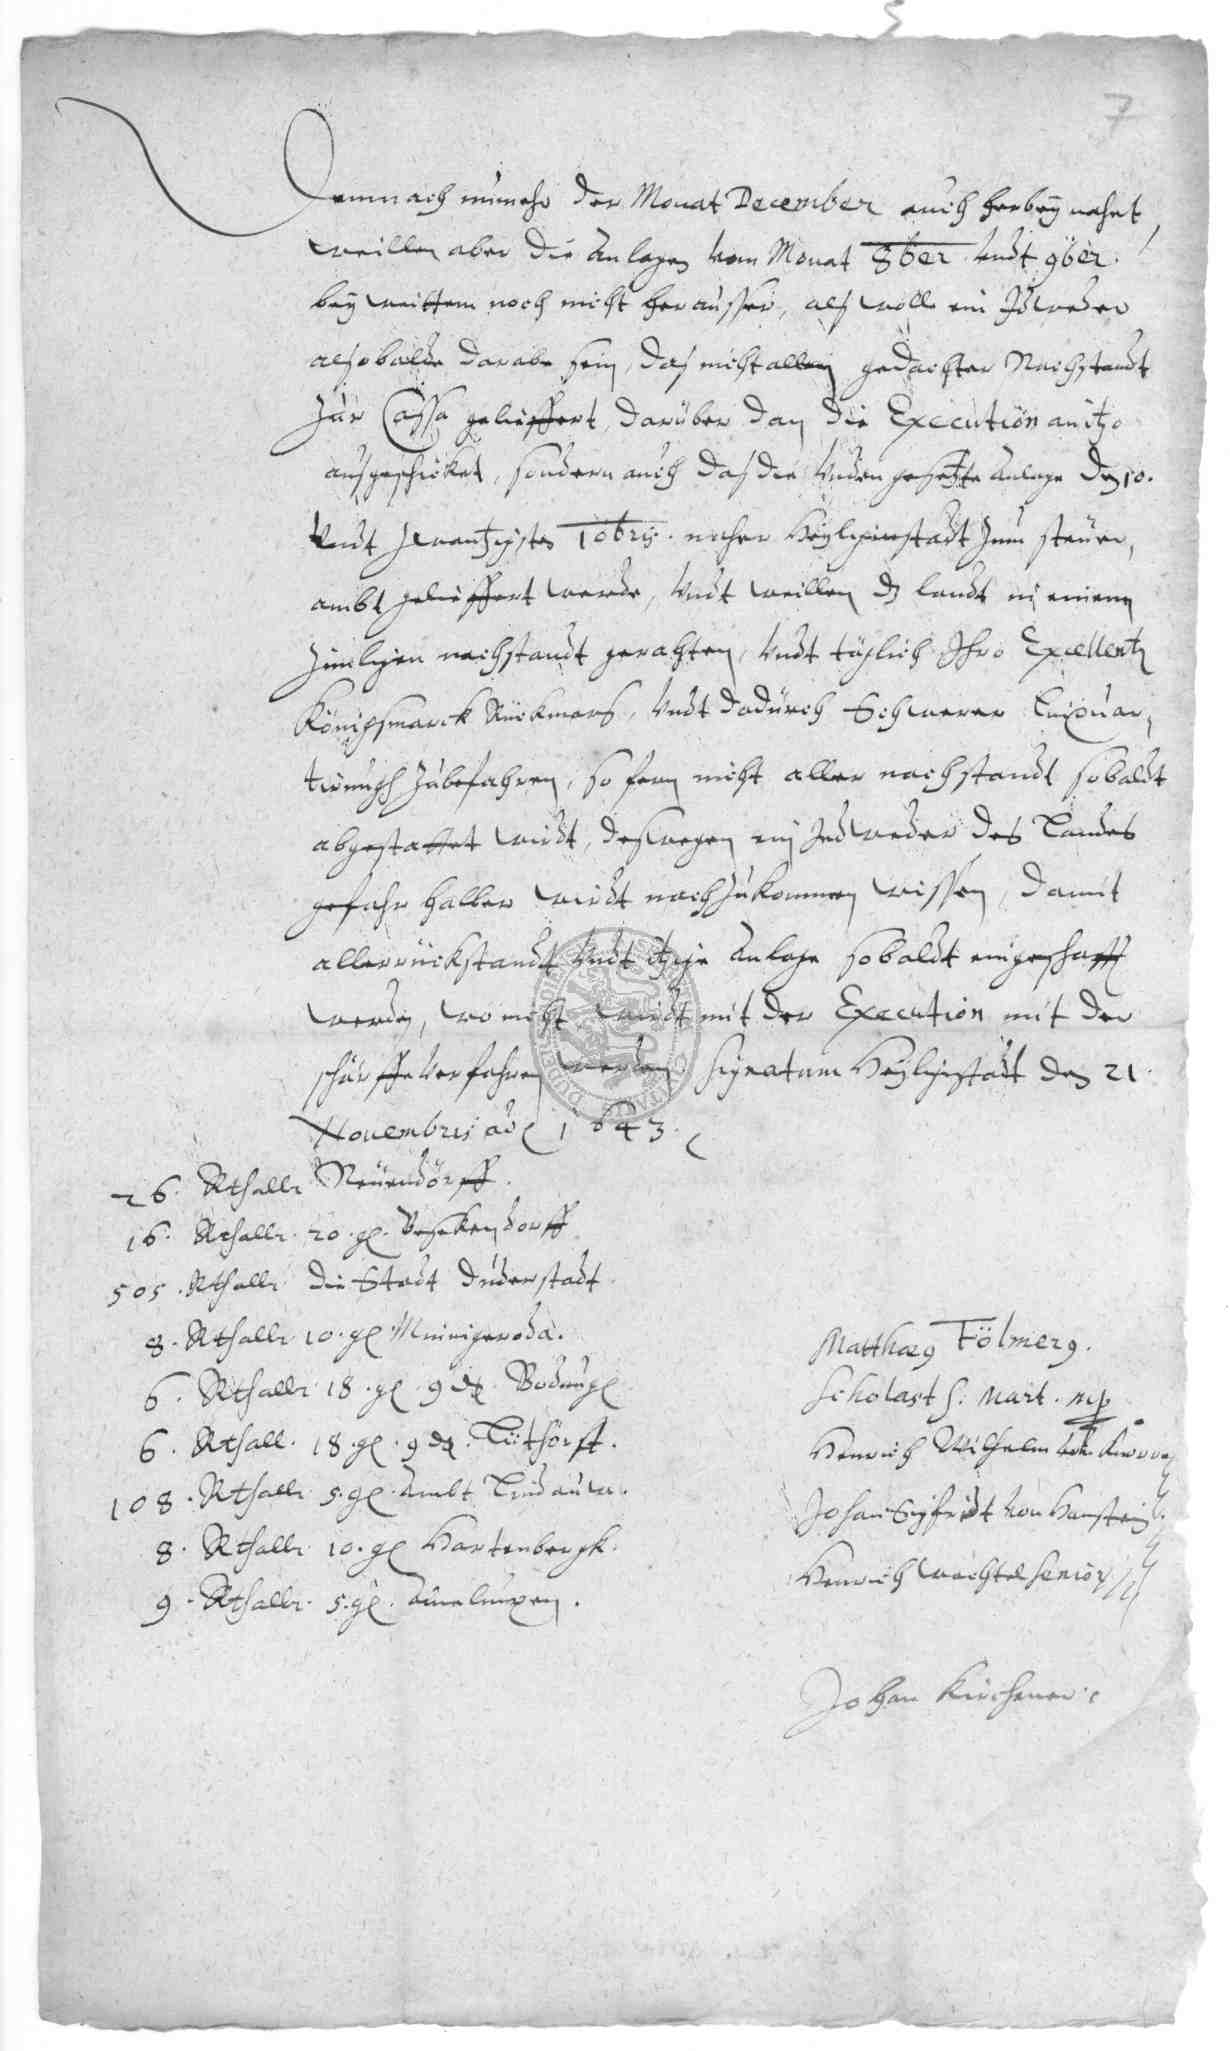 7
Demnach numehr der Monat December auch herbey nahet,
weillen aber die Anlagen vom Monat 8ber vndt 9ber
bey weittem noch nicht herausser, als wolle ein Jdweder
alsobalde darabe sein, das nicht allein gedachter Nachstandt
zur Cassa gelieffert, darüber dan die Execution anitzo
ausgeschicket, sondern auch das die vnden gesetzte Anlage den 10.
vndt zwantzigsten Xbris naher Heyligenstadt zum steuer,
ambt gelieffert werde, vndt weillen dz landt in einem
zimlichen nachstandt gerahten, vndt täglich Jhro Excellentz
Königsmarck Rückmars, vndt dadurch Schwerer Einquar,
tirungh zubefahren, so fern nicht aller nachstandt sobaldt
abgestattet wirdt, deswegen ein Jedweder des Landes
gefahr halber wirdt nachzukommen wissen, damit
aller rückstandt vndt itzige Anlage sobaldt eingeschafft
werden, wo nicht wirdt mit der Execution mit der
schärffe verfahren werden Signatum Heyligenstadt den 21
Novembris ao 1643.
26. Rthallr Neuendorff.
16. Rthallr. 20. gl. Beseckendorff
505. Rthallr die Stadt Duderstadt
8. Rthallr 10. gl Minnigeroda.
6. Rthallr 18. gl 9 d. Bodungl
6. Rthall. 18. gl. 9 d. Lüthorst.
108. Rthallr 5. gl. Ambt Lindauw.
8. Rthallr 10. gl Hartenbergk.
9. Rthallr. 5. gl. Amelunxen.
Matthaeus Völmerg.
Scholast S. Mart. mp
Henrich Wilhelm von Knorr
Johan Sigfridt von Hanstein
Henrich wachtel Senior
Johan Kirchener